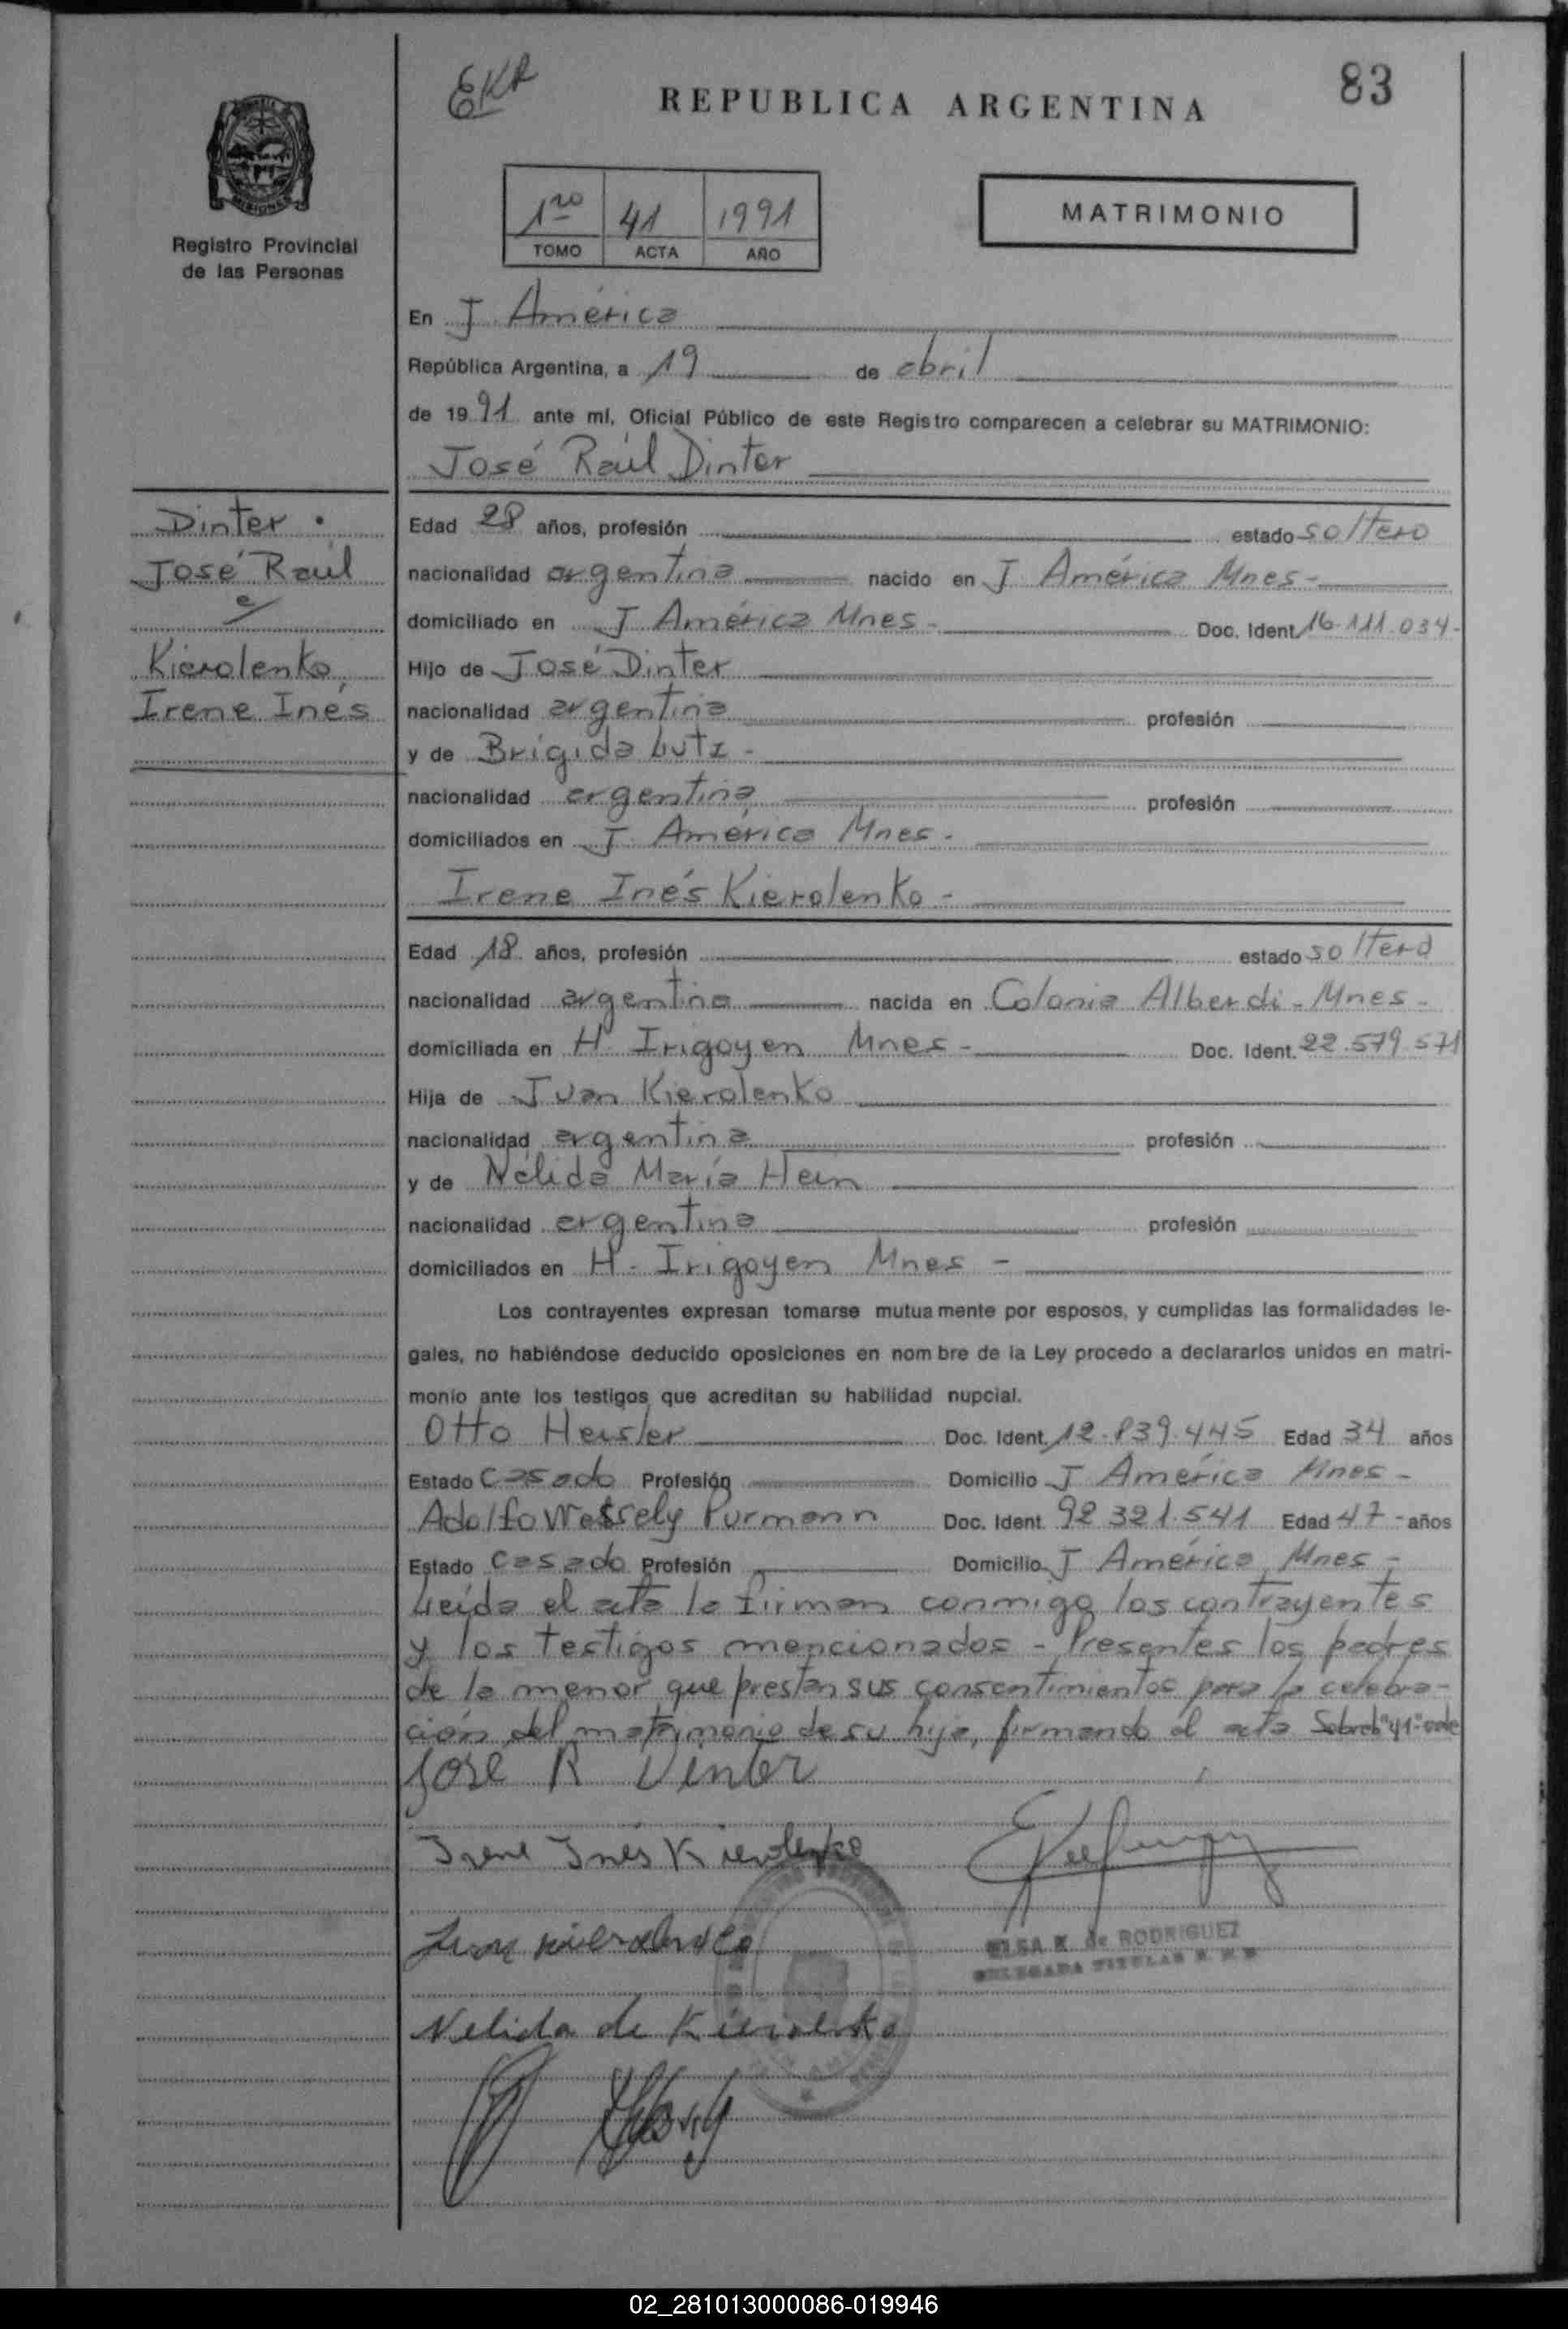 EKR
REPUBLICA ARGENTINA
83
MISIONES
Registro Provincial
de las Personas
1ro 41 1991
TOMO ACTA AÑO
MATRIMONIO
En J América
República Argentina, a 19 de abril
de 1991 ante mí, Oficial Público de este Registro comparecen a celebrar su MATRIMONIO:
José Raúl Dinter
Dinter
José Raúl
c/
Kierolenko,
Irene Inés
Edad 28 años, profesión estado soltero
nacionalidad argentina nacido en J América Mnes-
domiciliado en J América Mnes- Doc. Ident. 16.111.034-
Hijo de José Dinter
nacionalidad argentina profesión
y de Brígida Lutz -
nacionalidad argentina profesión
domiciliados en J América Mnes.
Irene Inés Kierolenko -
Edad 18 años, profesión estado soltera
nacionalidad argentina nacida en Colonia Alberdi - Mnes-
domiciliada en H. Irigoyen Mnes- Doc. Ident. 22.579.571
Hija de Juan Kierolenko
nacionalidad argentina profesión
y de Nélida María Hein
nacionalidad argentina profesión
domiciliados en H. Irigoyen Mnes -
Los contrayentes expresan tomarse mutuamente por esposos, y cumplidas las formalidades le-
gales, no habiéndose deducido oposiciones en nombre de la Ley procedo a declararlos unidos en matri-
monio ante los testigos que acreditan su habilidad nupcial.
Otto Heisler Doc. Ident. 12.839.445 Edad 34 años
Estado Casado Profesión Domicilio J América Mnes-
Adolfo Wessely Purmann Doc. Ident. 92 321.541 Edad 47- años
Estado Casado Profesión Domicilio J América Mnes-
Leída el acta la firman conmigo los contrayentes
y los testigos mencionados - Presentes los padres
de la menor que prestan sus consentimientos para la celebra-
ción del matrimonio de su hija, firmando el acta "41" vale
José R Dinter
Irene Inés Kierolenko
Juan Kierolenko
ELSA K. de RODRIGUEZ
DELEGADA TITULAR
Nelida de Kierolenko
02_281013000086-019946